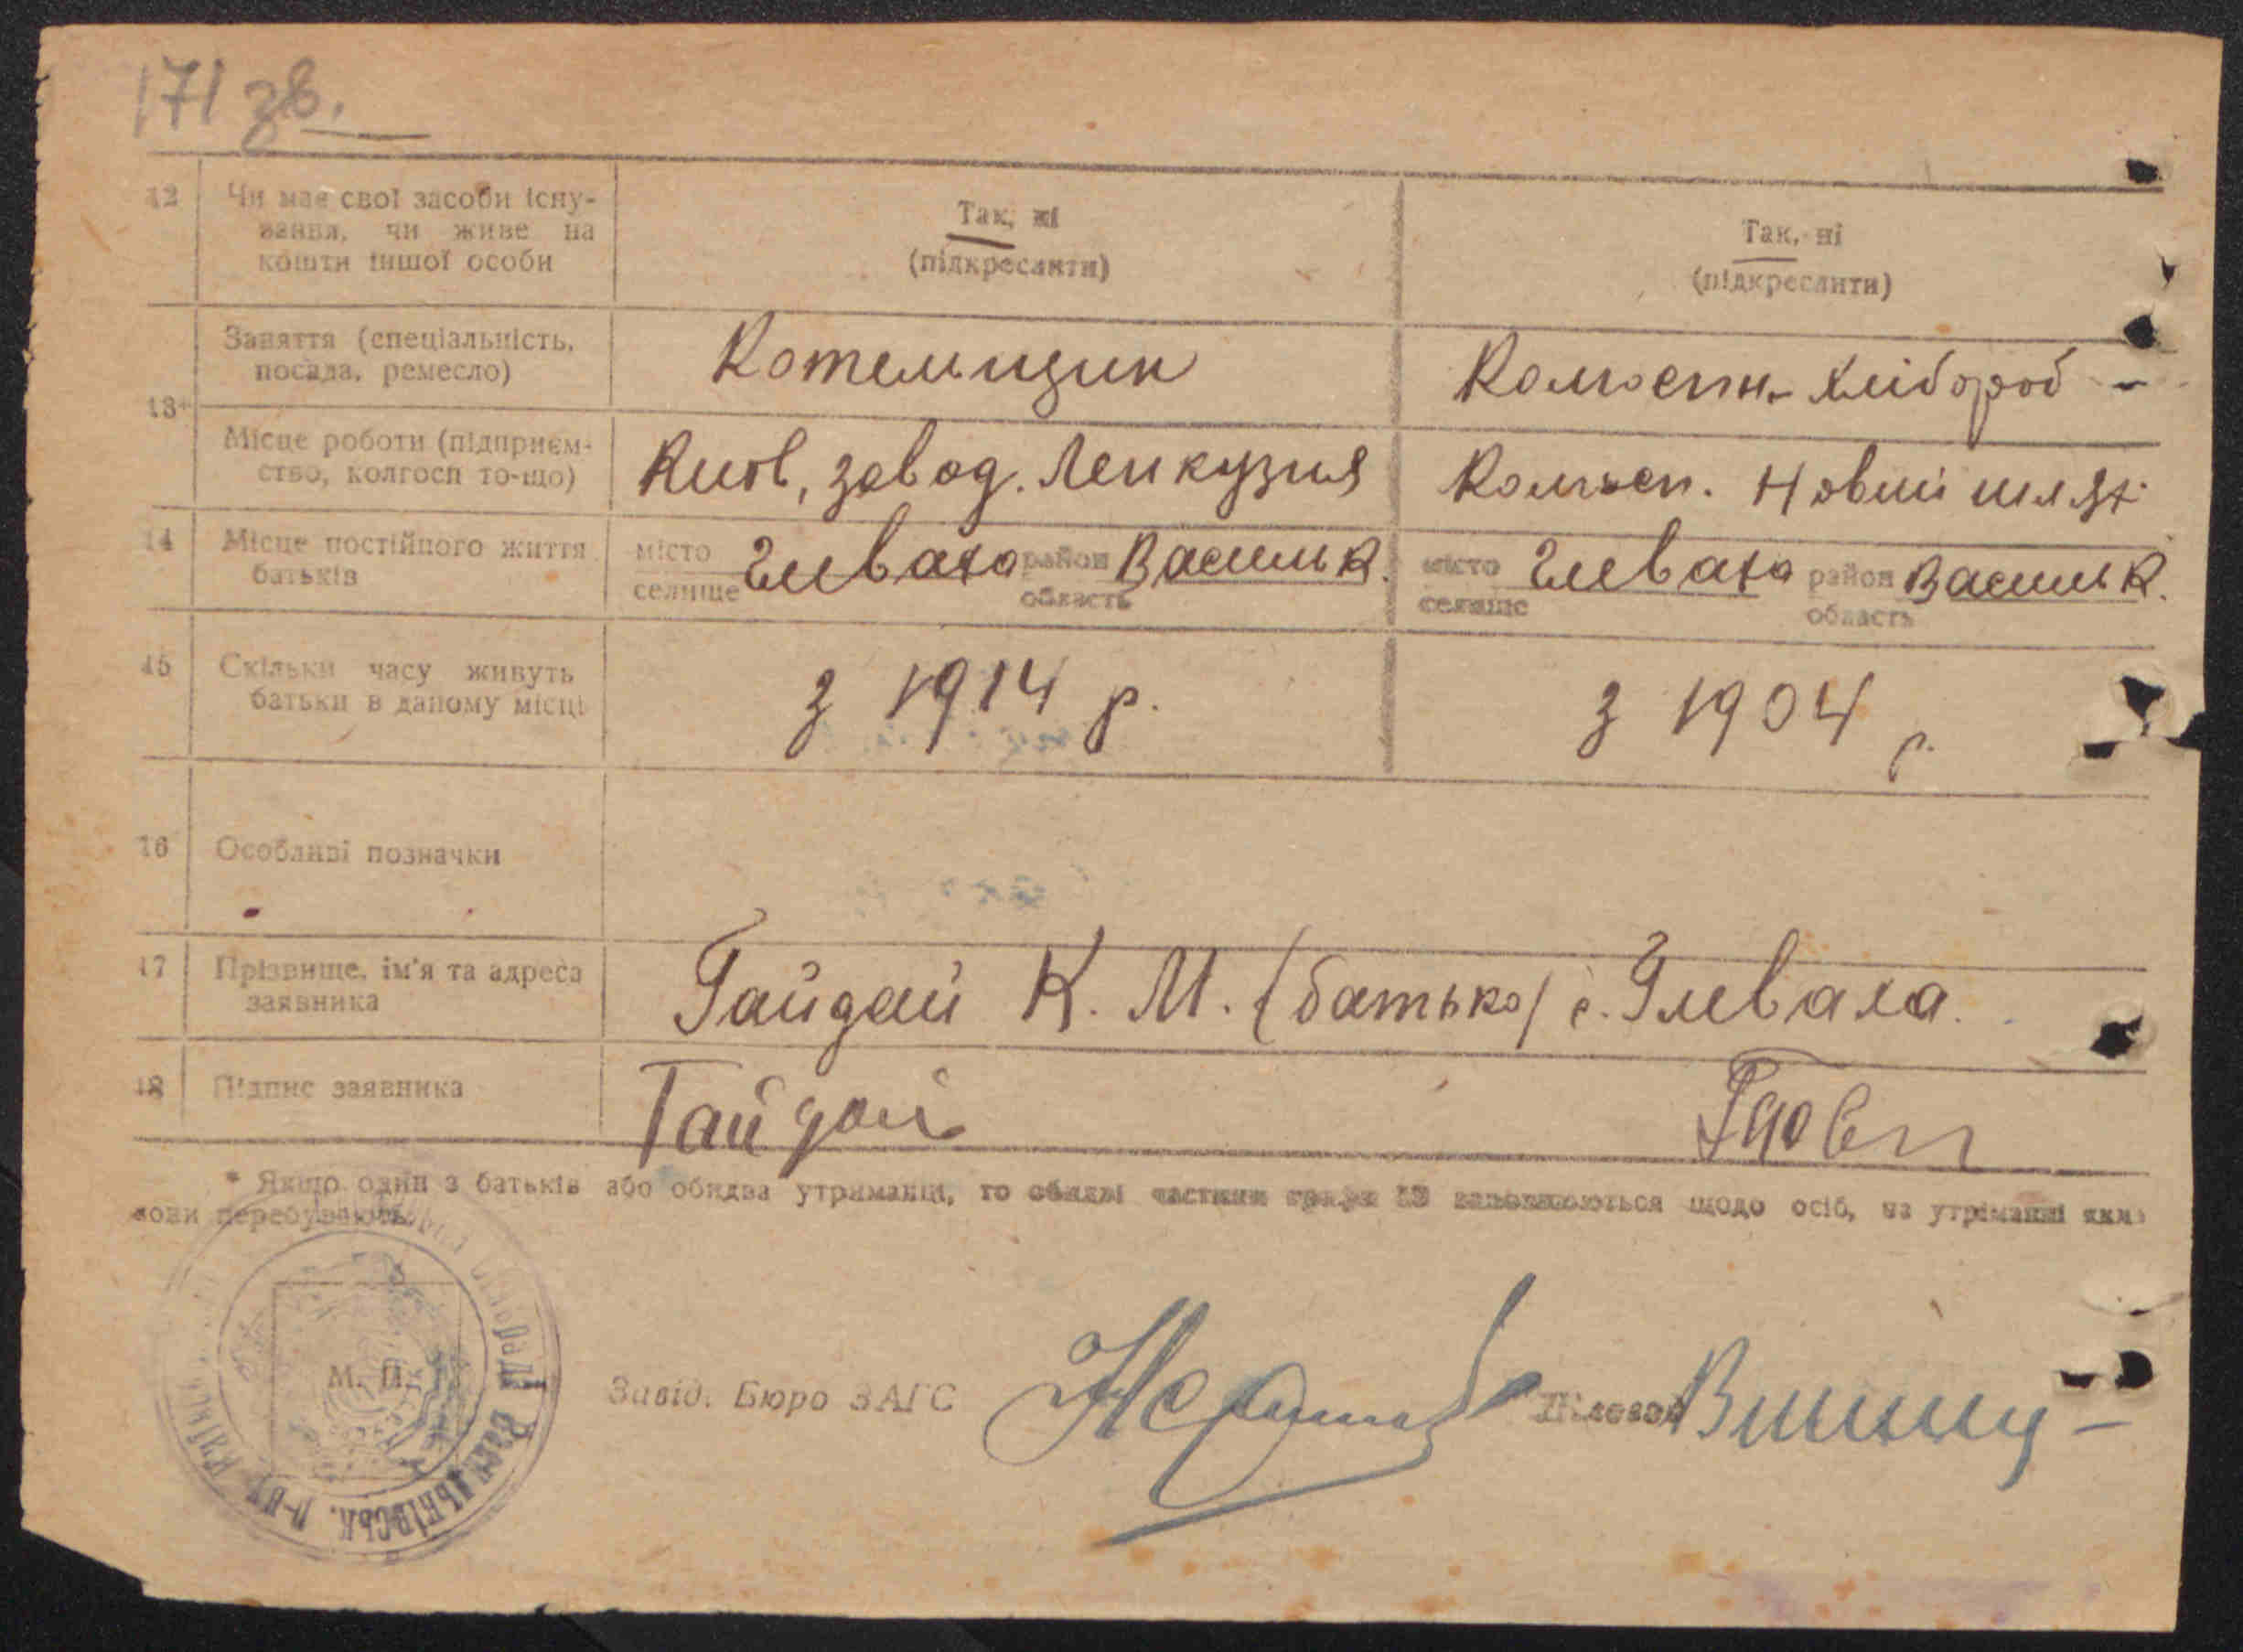 171 зв.
12 Чи має свої засоби існу-
вання, чи живе на
кошти іншої особи
Так, ні
(підкреслити)
Так, ні
(підкреслити)
13* Заняття (спеціальність,
посада, ремесло)
Котельщик
Колгоспн. хлібороб -
Місце роботи (підприєм-
ство, колгосп то-що)
Київ, завод. Ленкузня
Колгосп. Новий шлях
14 Місце постійного життя
батьків
місто селище Глеваха район область Васильк.
місто селище Глеваха район область Васильк.
15 Скільки часу живуть
батьки в даному місці
з 1914 р.
з 1904 р.
16 Особливі позначки
17 Прізвище, ім'я та адреса
заявника
Гайдай К. М. (батько) с. Глеваха.
18 Підпис заявника
Гайдай
* Якщо один з батьків або обидва утриманці, то обидві частини графи 13 заповнюються щодо осіб, на утриманні яких
вони перебувають.
М. П.
Васильківськ. р-ну
Завід. Бюро ЗАГС
Діловод